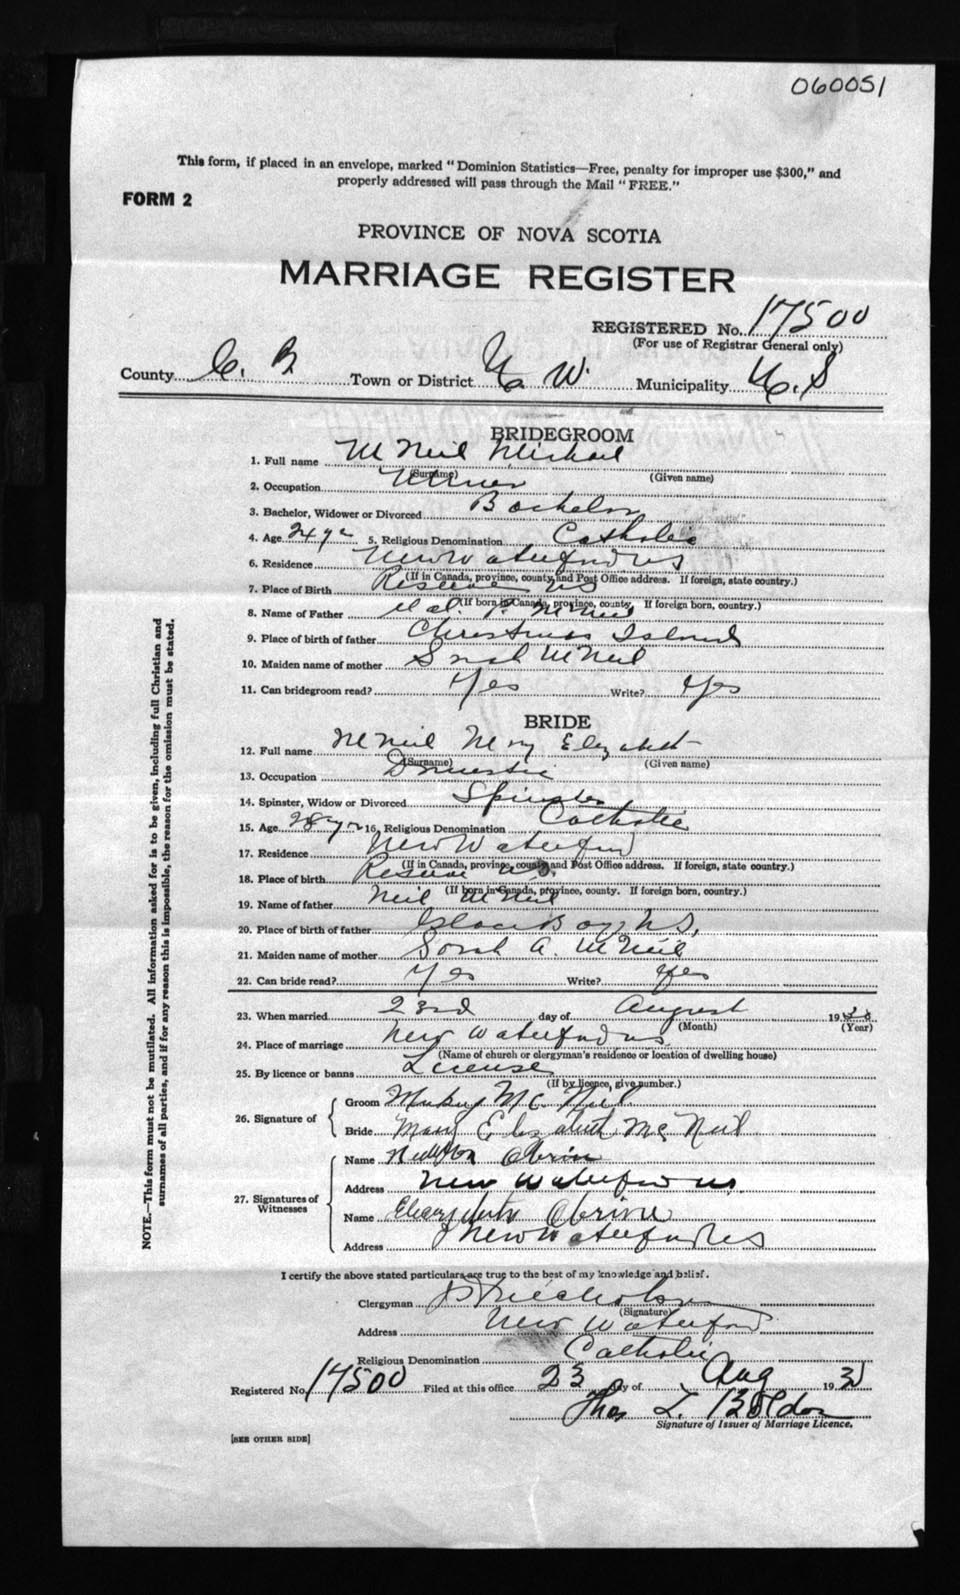 060051
This form, if placed in an envelope, marked "Dominion Statistics—Free, penalty for improper use $300," and
properly addressed will pass through the Mail "FREE."
FORM 2
PROVINCE OF NOVA SCOTIA
MARRIAGE REGISTER
REGISTERED No. 17500
(For use of Registrar General only)
County C. B Town or District N. W. Municipality N.S
BRIDEGROOM
1. Full name McNeil Michael
(Surname) (Given name)
2. Occupation Miner
3. Bachelor, Widower or Divorced Bachelor
4. Age 24 yr 5. Religious Denomination Catholic
6. Residence New Waterford NS
(If in Canada, province, county and Post Office address. If foreign, state country.)
7. Place of Birth Reserve NS
(If born in Canada, province, county. If foreign born, country.)
8. Name of Father McNeil
9. Place of birth of father Christmas Island
10. Maiden name of mother Sarah McNeil
11. Can bridegroom read? Yes Write? Yes
BRIDE
12. Full name McNeil Mary Elizabeth
(Surname) (Given name)
13. Occupation Domestic
14. Spinster, Widow or Divorced Spinster
15. Age 28 yr 16. Religious Denomination Catholic
17. Residence New Waterford
(If in Canada, province, county and Post Office address. If foreign, state country.)
18. Place of birth Reserve NS.
(If born in Canada, province, county. If foreign born, country.)
19. Name of father Neil McNeil
20. Place of birth of father Glace Bay, N.S.
21. Maiden name of mother Sarah A. McNeil
22. Can bride read? Yes Write? Yes
23. When married 23rd day of August 19
(Month) (Year)
24. Place of marriage New Waterford NS.
(Name of church or clergyman's residence or location of dwelling house)
25. By licence or banns License
(If by licence, give number.)
26. Signature of
Groom Mc Neil
Bride Mary Elizabeth Mc Neil
27. Signatures of Witnesses
Name Obrien
Address New Waterford NS.
Name Obrien
Address New Waterford NS
I certify the above stated particulars are true to the best of my knowledge and belief.
Clergyman Nicholson
(Signature)
Address New Waterford
Religious Denomination Catholic
Registered No. 17500 Filed at this office 23 day of Aug 19
Thos
Signature of Issuer of Marriage Licence.
[SEE OTHER SIDE]
NOTE.—This form must not be mutilated. All information asked for is to be given, including full Christian and
surnames of all parties, and if for any reason this is impossible, the reason for the omission must be stated.